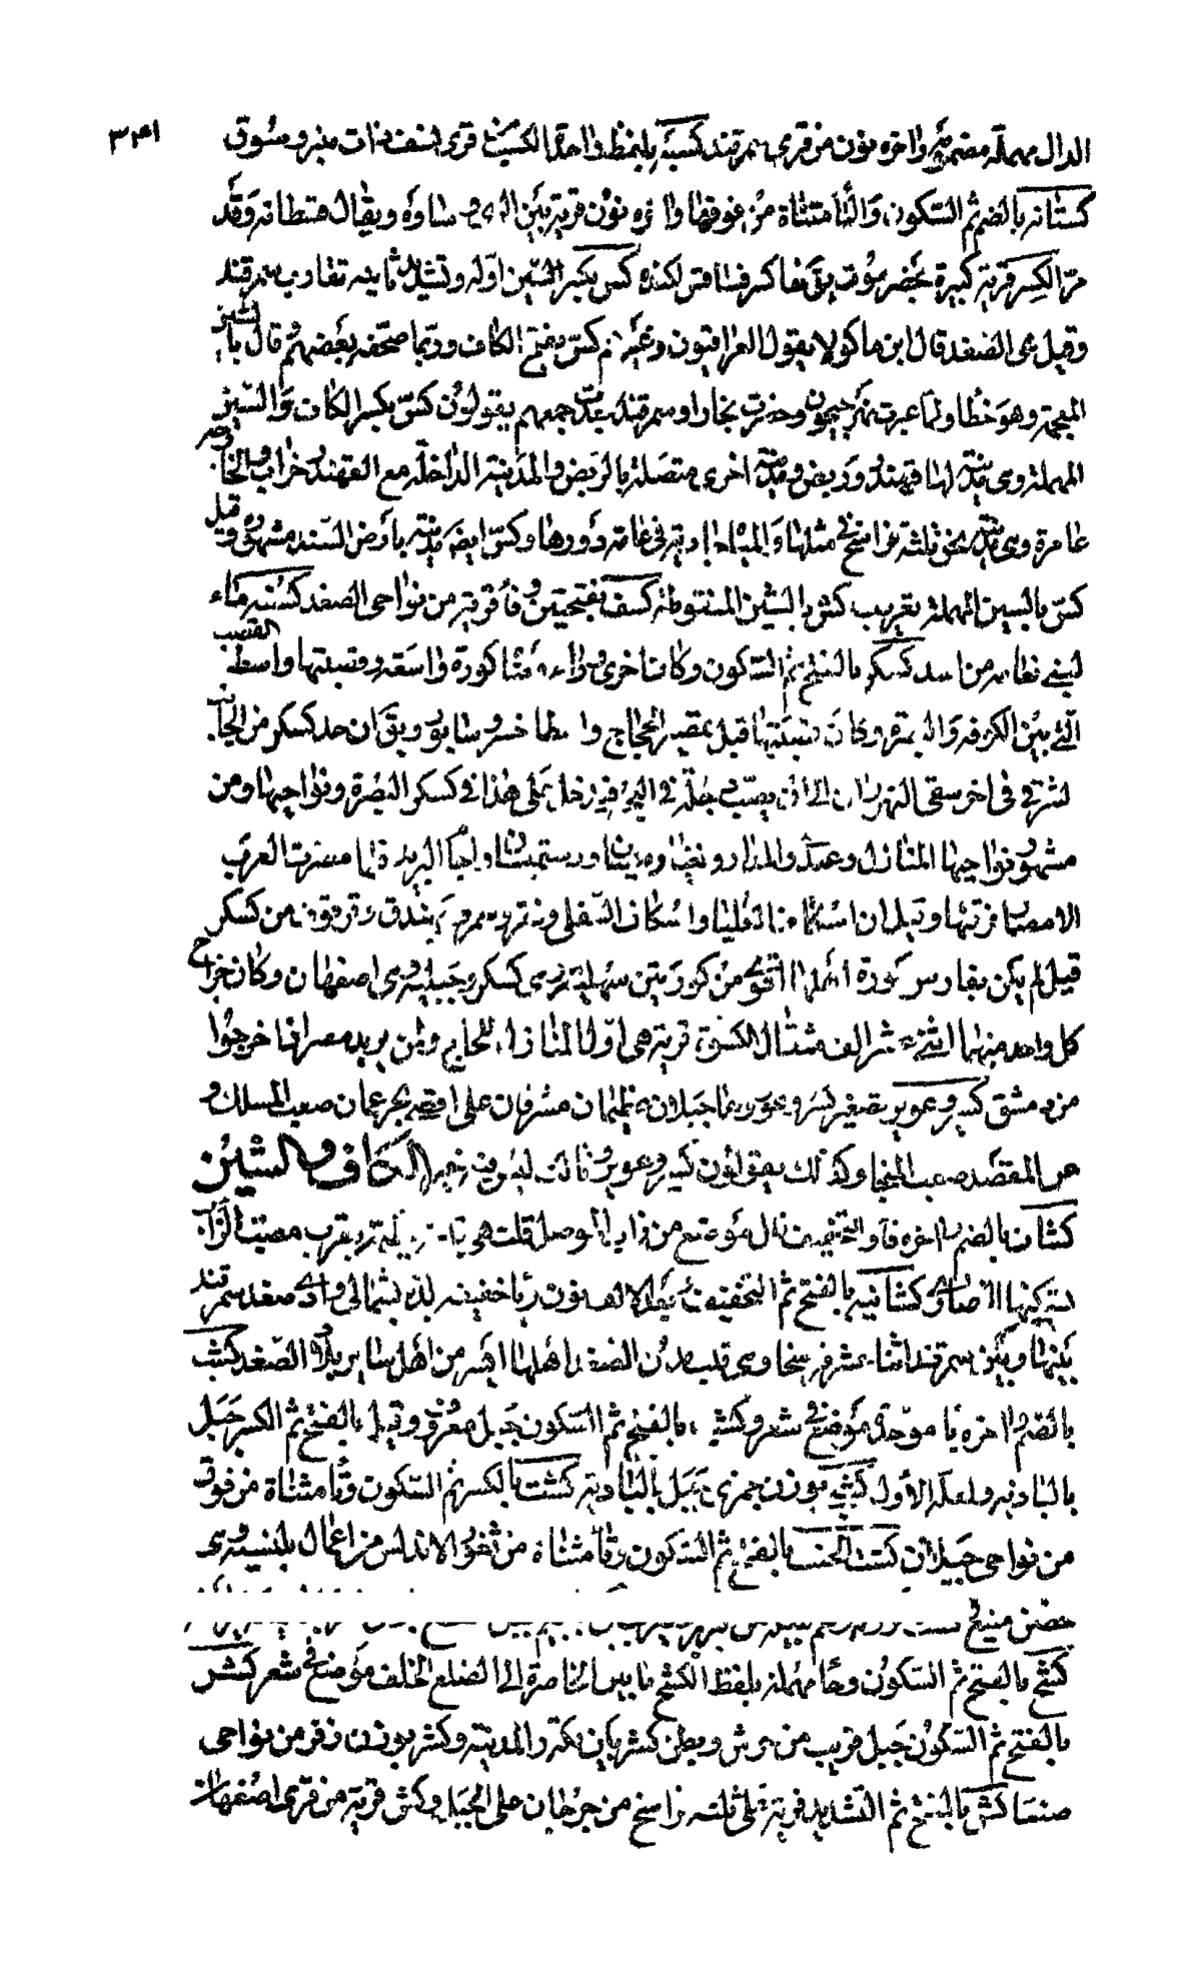 ٣٤١
الدال مهملة مضمومة واخره نون من قرى سمرقند كسبة بلفظ واحدة الكسب من قرى نسف ذات منبر وسوق
كستانه بالضم ثم السكون والتا مثناة من فوقها واخره نون قرية بين الرى وساوه ويقال فستانه وقد
مرّ الكسر قرية كبيرة بحضرموت يق كس بكسر السين اوله وتشديد ثانيه تقارب سمرقند
وقيل هى الصغد قال ابن ماكولا يقول العراقيون وغيرهم كس بفتح الكاف وربما صحفه بعضهم قال بالشين
المعجمة وهو خطا ولما عبرت نهر جيحون وحضرت بخارا وسمرقند جميعهم يقولون كس بكسر الكاف والسين
المهملة وهى مدينة لها قهندز وربض ومدينة اخرى متصلة بالربض والمدينة الداخلة مع القهندز خراب والخارجة
عامرة وهى مدينة نحو ثلثة فراسخ فى مثلها والمياه جارية فى عامة دورها وكس ايضا مدينة بارض السند مشهورة وقيل
كس بالسين المهملة تعريب كش بالشين المنقوطة كسف بفتحتين وفا قرية من نواحى الصغد ماء
لبنى من اسد كسكر بالفتح ثم السكون وكاف اخرى وراء كورة واسعة وقصبتها واسط القصب
التى بين الكوفة والبصرة وكان قصبتها قبل تمصير الحجاج واسطا خسرو سابور ويق ان حد كسكر من الجانب
لشرقى فى اخر سقى النهروان الى ان يصب دجلة فى البحر فيدخل على هذا فى كسكر البصرة ونواحيها ومن
مشهور نواحيها المبارك والمذار ونغيا وميسان ودستميسان واجام البريد فلما مصرت العرب
الامصار فرقتها وقيل ان اسكاف العليا واسكاف السفلى من كسكر
قيل لم يكن بفارس كورة اهلها اقوى من كورتين سهلية وهى كسكر وجبلية وهى اصفهان وكان خراج
كل واحد منهما اثنى عشر الف مثقال الكسوة قرية هى اول المنازل للحاج ومن يريد مصر اذا خرجوا
من دمشق كسير وعوير تصغير كسر وعور وهما جبلان عظيمان مشرفان على اقصى بحر عمان صعب المسلك و
عر المقصد صعب المنجا وكذلك يقولون كسير وعوير وثالث ليس فيه خير الكاف والشين
كشاف بالضم واخره فا والتخفيف قال موضع من زاب الموصل قلت هى بقرب مصب الزاب
كشانيه بالفتح ثم التخفيف وبعد الالف نون ويا خفيفه بلدة بشمالى وادى صغد سمرقند
بينها وبين سمرقند اثنا عشر فرسخا وهى قلب مدن الصغد اهلها ايسر من اهل ساير بلاد الصغد كشب
بالضم واخره با موحدة موضع فى شعر وكشب بالفتح ثم السكون جبل معروف وقيل بالفتح ثم الكسر جبل
بالبادية ولعله الاول كشبى بوزن جمزى جبل بالبادية كشت بالكسر ثم السكون وتا مثناة من فوق
من نواحى جيلان كشت الحنب بالفتح ثم السكون وتا مثناة من ثغور الاندلس من اعمال بلنسية وهى
حصن منيع
كشح بالفتح ثم السكون وحا مهملة بلفظ الكشح ما بين الخاصرة الى الضلع الخلف موضع فى شعر كشر
بالفتح ثم السكون جبل قريب من جرش وبطن كشر بين مكة والمدينة وكشر بوزن زفر من نواحى
صنعا كش بالفتح ثم التشديد قرية على ثلثة فراسخ من جرجان على الجبل وكش قرية من قرى اصفهان